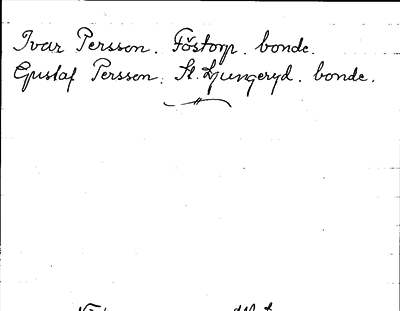 Ivar Persson. Föstorp. bonde.
Gustaf Persson. St. Ljungeryd. bonde.